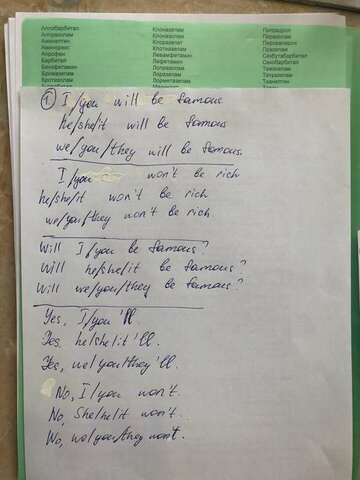 Аллобарбитал Клоназепам Пипрадрол
Алпразолам Клоразепат Празепам
Аминептин Пировалерон
Аминорекс Клотиазепам Празепам
Апрофен Левамфетамин Секбутабарбитал
Барбитал Лефетамин Секобарбитал
Бензфетамин Лопразолам Темазепам
Бромазепам Лоразепам Тетразепам
Бротизолам Лорметазепам Триазолам
① I/you will be famous
he/she/it will be famous
we/you/they will be famous.
I/you won't be rich
he/she/it won't be rich
we/you/they won't be rich
Will I/you be famous?
Will he/she/it be famous?
Will we/you/they be famous?
Yes, I/you'll.
Yes, he/she/it'll.
Yes, we/you/they'll.
No, I/you won't.
No, she/he/it won't.
No, we/you/they won't.